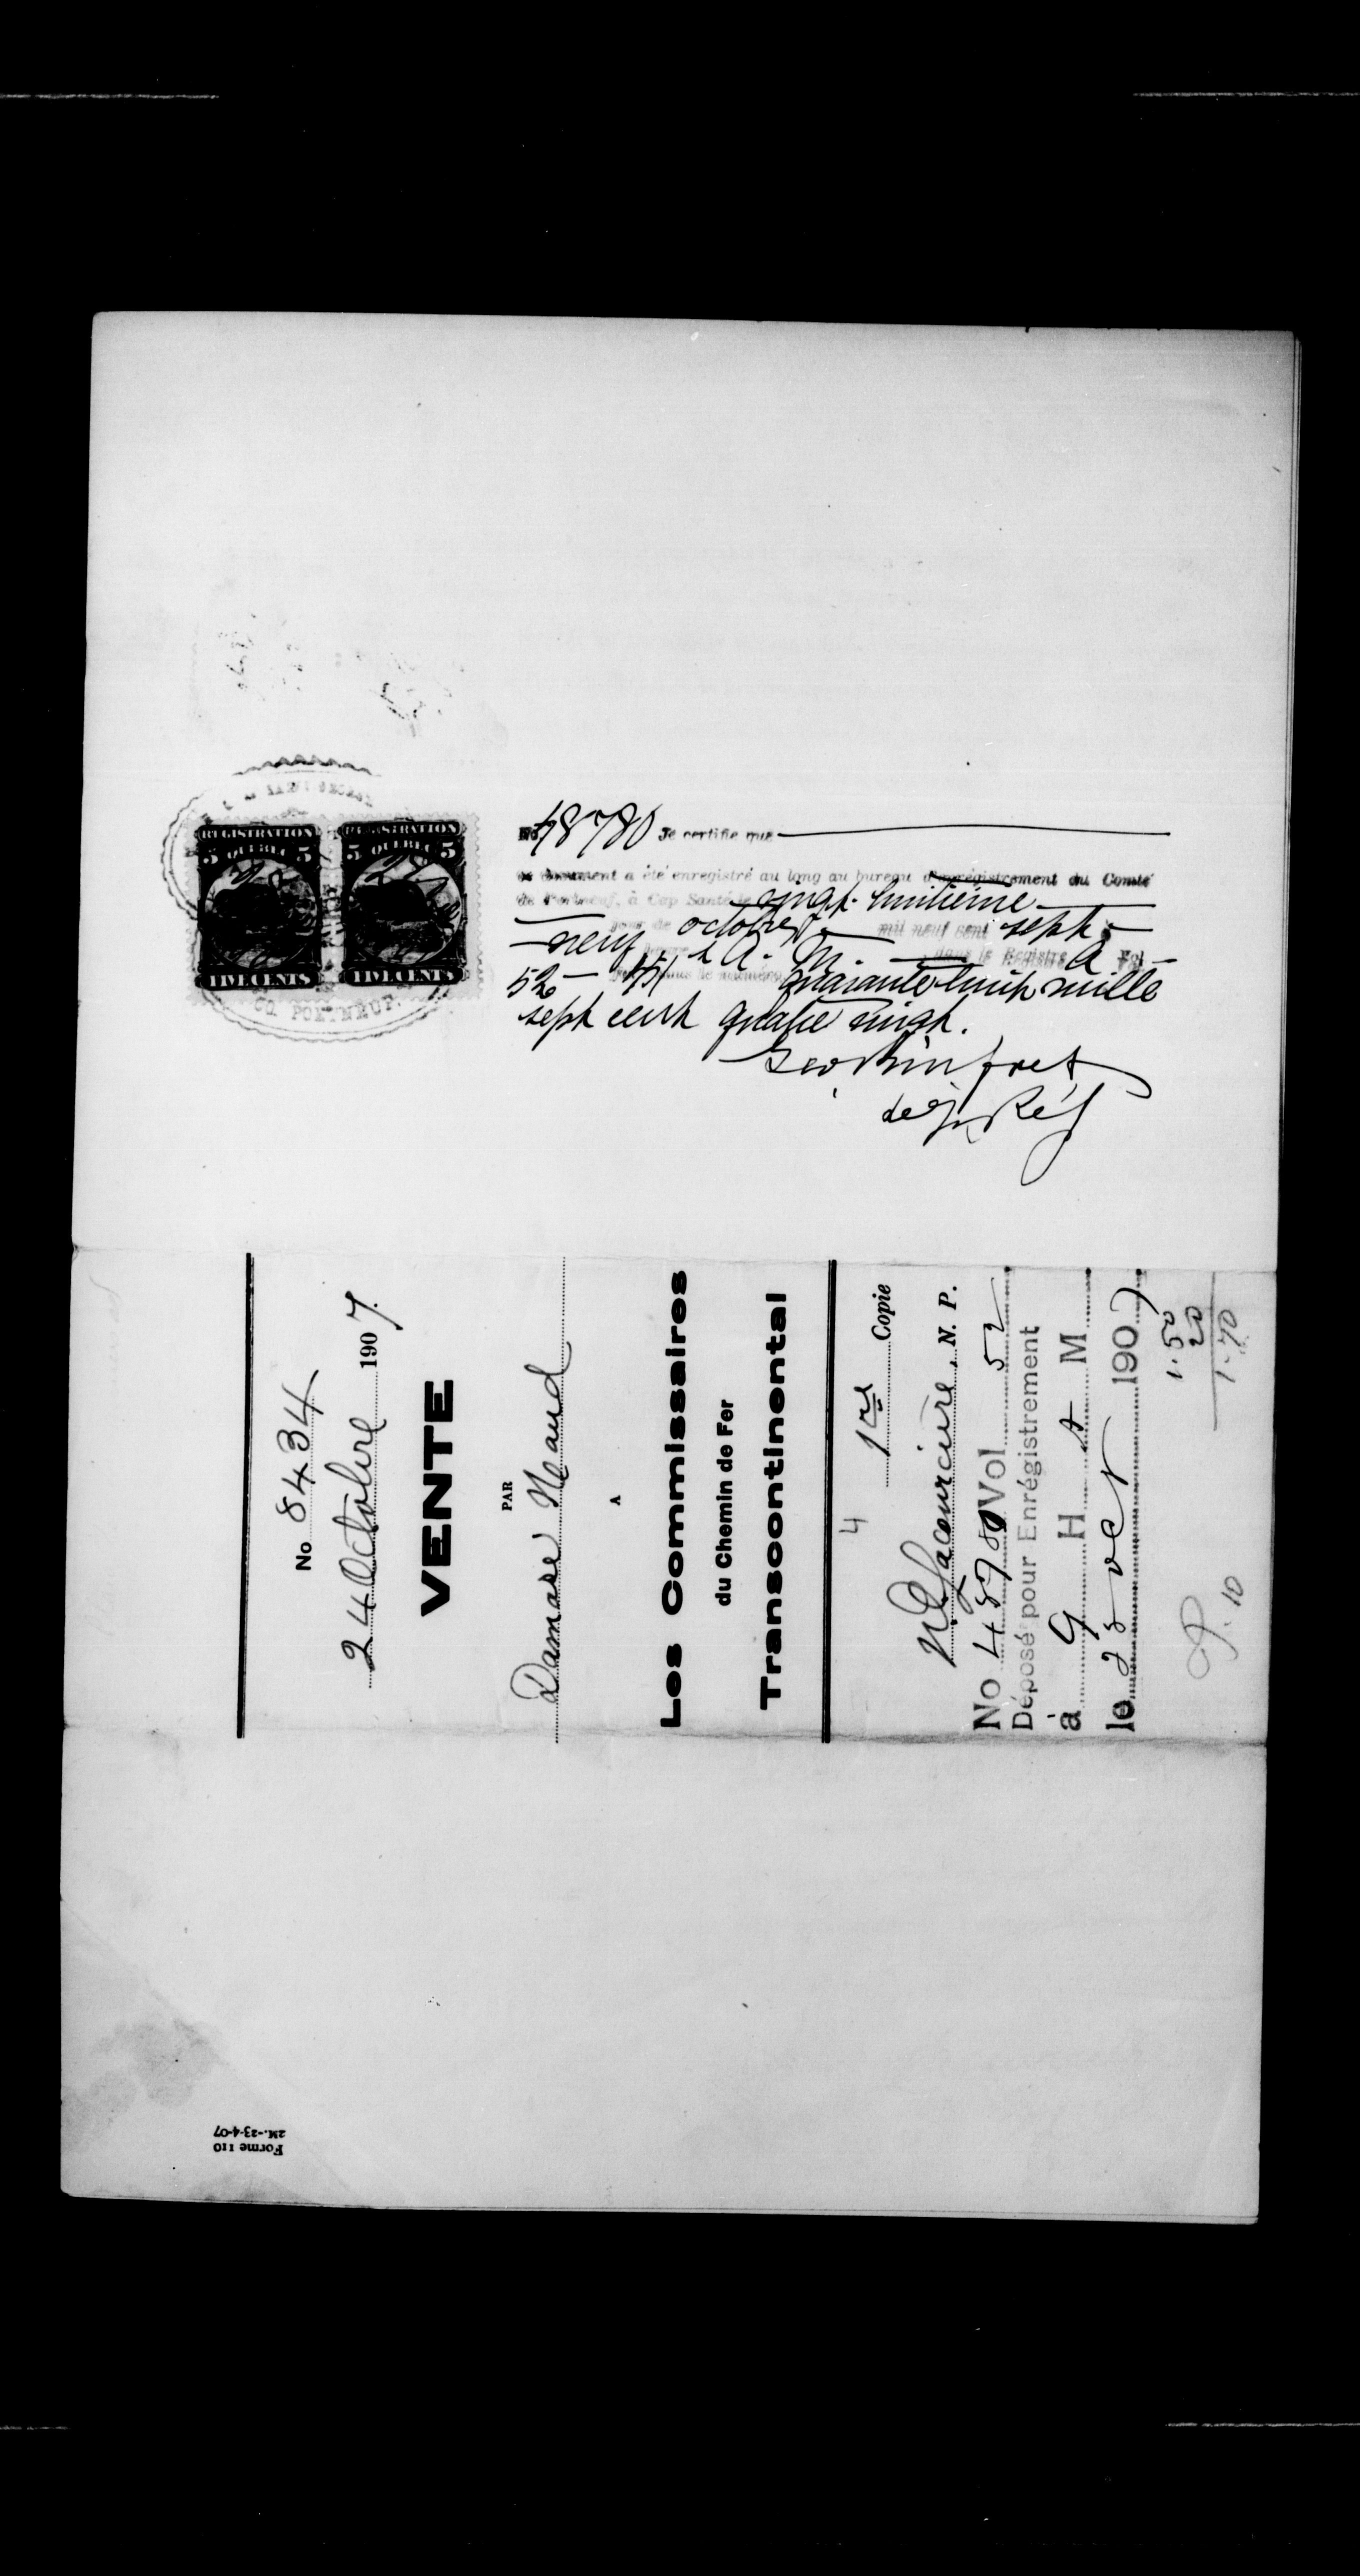 REGISTRATION
5 QUEBEC 5
FIVE CENTS
REGISTRATION
5 QUEBEC 5
FIVE CENTS
CO. PORTNEUF.
No 48780 Je certifie que
ce document a été enregistré au long au bureau d'enregistrement du Comté
de Portneuf, à Cap Santé, le vingt-huitième
jour de octobre mil neuf cent sept
neuf heure A. M. dans le Registre A Fol
52 sous le numéro quarante-huit mille
sept cent quatre vingt.
Geo Rinfret
dep Rég
No 8434
24 Octobre 1907.
VENTE
PAR
Damase Neaud
A
Les Commissaires
du Chemin de Fer
Transcontinental
4 1re Copie
Lacourcière, N. P.
No 48780 Vol 52
Déposé pour Enrégistrement
à 9 H A M
le 28 oct 1907
1.50
20
1.70
10
Forme 110
2M.-23-4-07